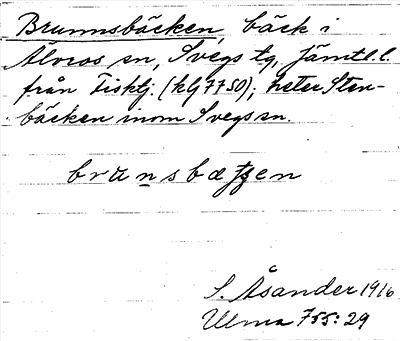 Brunnsbäcken bäck i
Älvros sn, Svegs tg, Jämtl. l.
från Fisklj. (kG 7750); heter Sten-
bäcken inom Svegs sn.
S. Åsander 1916
Ulma 755:29